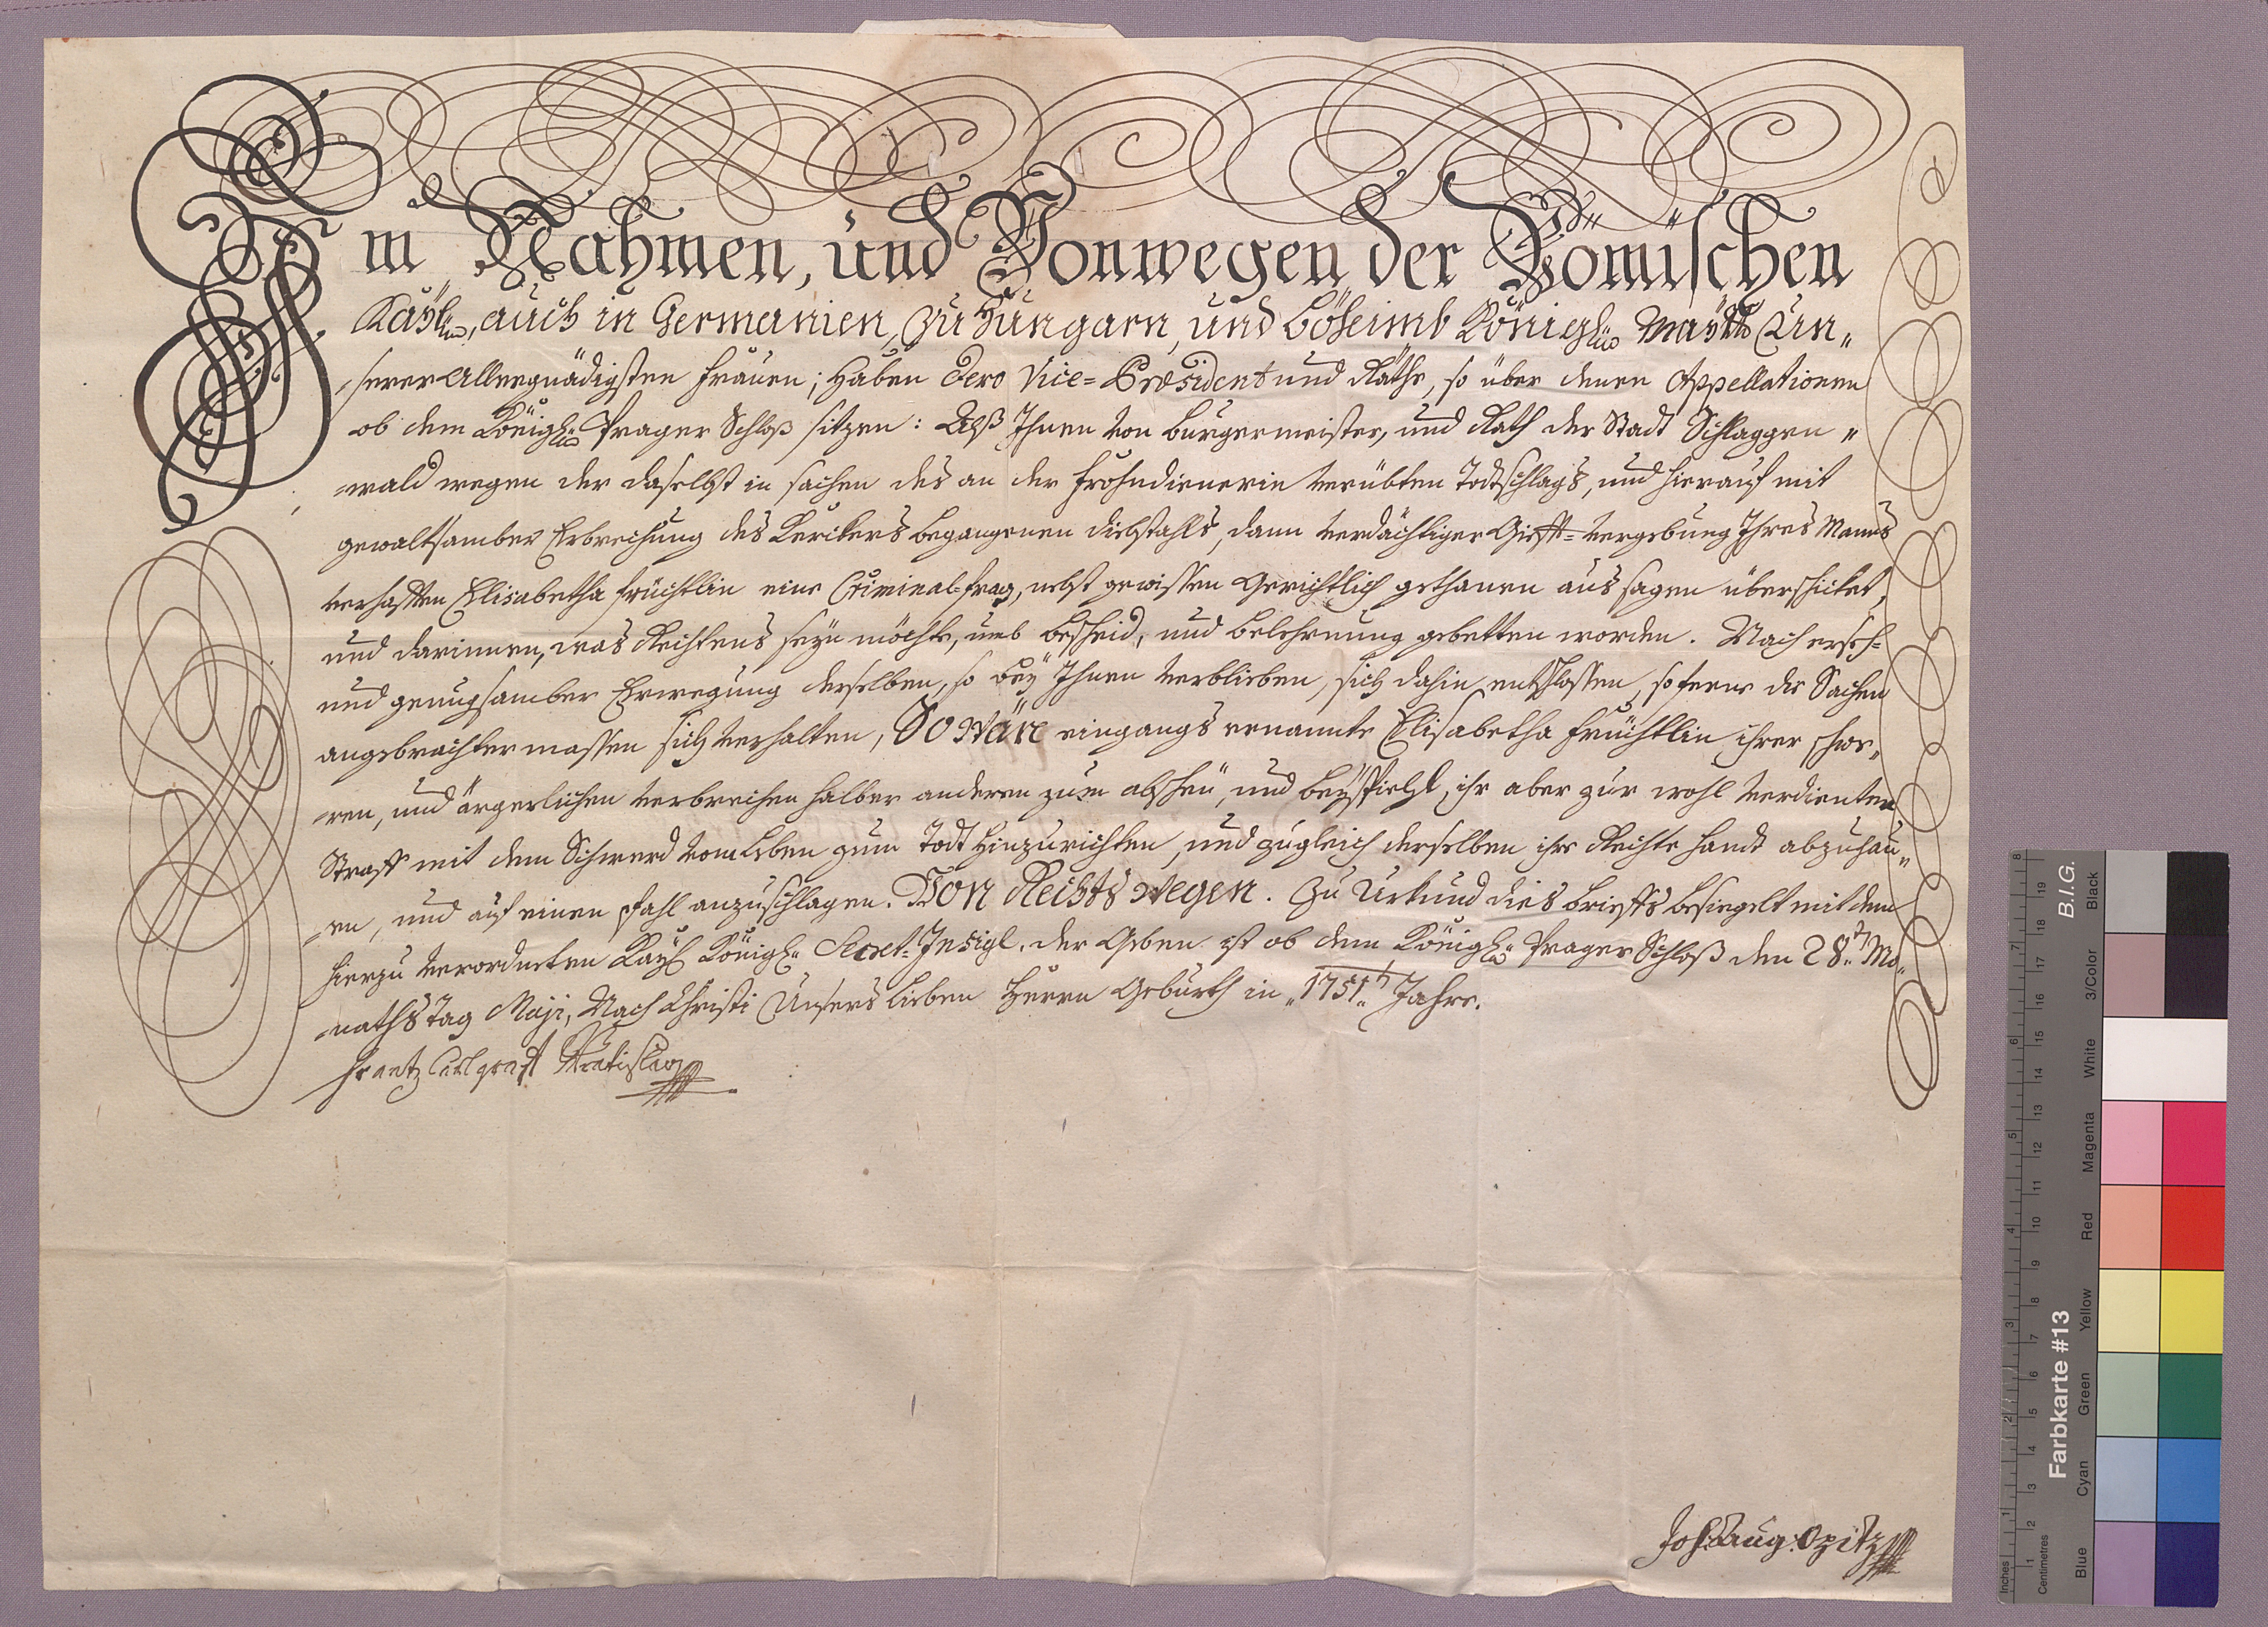 Im Nahmen, und Vonwegen der Römischen
Kaÿl: auch in Germanien, zu Hungarn, und Böheimb Königl: Maÿtt: Un„
„serer Allergnädigsten Frauen; haben Dero Vice=Præsident und Räthe, so über denen Appellationen
ob dem Königl: Prager Schloß sitzen: Alß Ihnen von Burgermeister, und Rath der Stadt Schlaggen„
„wald wegen der daselbst in sachen des an der Frohndienerin verübten Todtschlags, und hierauf mit
gewaltsamber Erbrechung des Kerckers begangenen diebstahls, dann verdächtiger Gifft=vergebung Ihres Manns
verhafften Elisabetha Früchtlin eine Criminal=frag, nebst gewissen Gerichtlich gethanen aussagen überschicket,
und darinnen, was Rechtens seÿn möchte, umb bescheid, und belehrnung gebetten worden. Nach erseh=
und genugsamber Erwegung derselben, so beÿ Ihnen verblieben, sich dahin entschlossen, soferne die Sachen
angebrachter massen sich verhalten, So wäre eingangs ernannte Elisabetha Früchtlin ihrer schwe„
„ren, und ärgerlichen verbrechen halber anderen zum abscheu, und beÿspiehl, ihr aber zur wohl verdienten
Straff mit dem Schwerd vom Leben zum Todt hinzurichten, und zugleich derselben ihre Rechte handt abzuhau„
„en, und auf einen pfahl anzuschlagen. Von Rechts wegen. Zu Urkund dies brieffs besiegelt mit dem
hierzu verordneten Kaÿl: Königl: Secret=Insigl, der Geben ist ob dem Königl: Prager Schloß den 28.t Mo„
„naths Tag Maji, Nach Christi Unsers lieben Herrn Geburth in „1751.t Jahre.
Frantz Carl graff Wratislaw
Joh: Aug: Opitz
Farbkarte #13
B.I.G.
Inches
Centimetres
Blue
Cyan
Green
Yellow
Red
Magenta
White
3/Color
Black